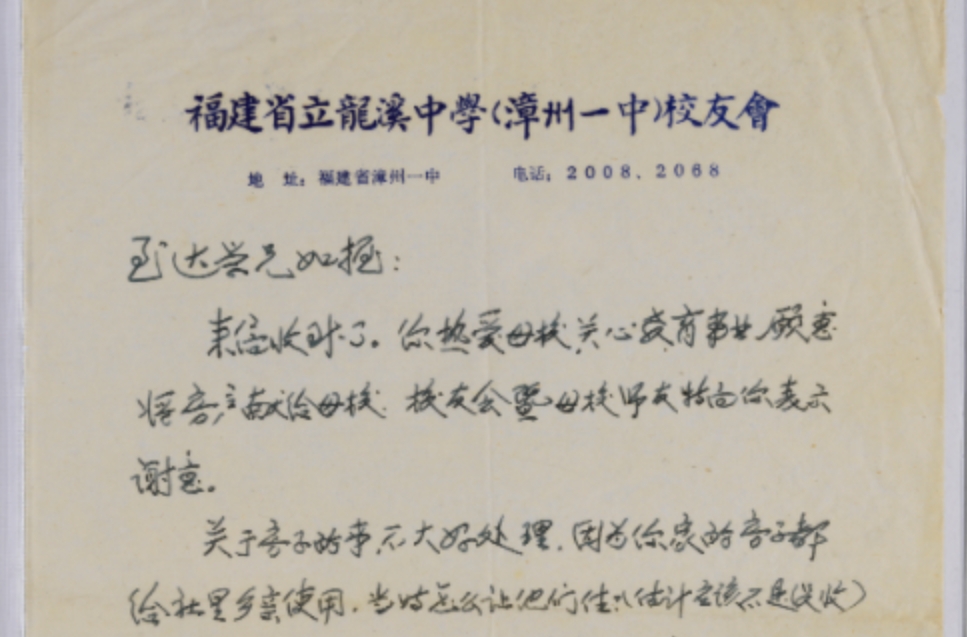 福建省立龍溪中學(漳州一中)校友會
地 址：福建省漳州一中 电话：2008、2068
达学兄如握：
来信收到了。你热爱母校，关心教育事业，愿意
将房产献给母校，校友会暨母校师友特向你表示
谢意。
关于房子的事，不大好处理，因为你家的房子都
给社里乡亲使用，当时怎么让他们住（估计应该不是没收）